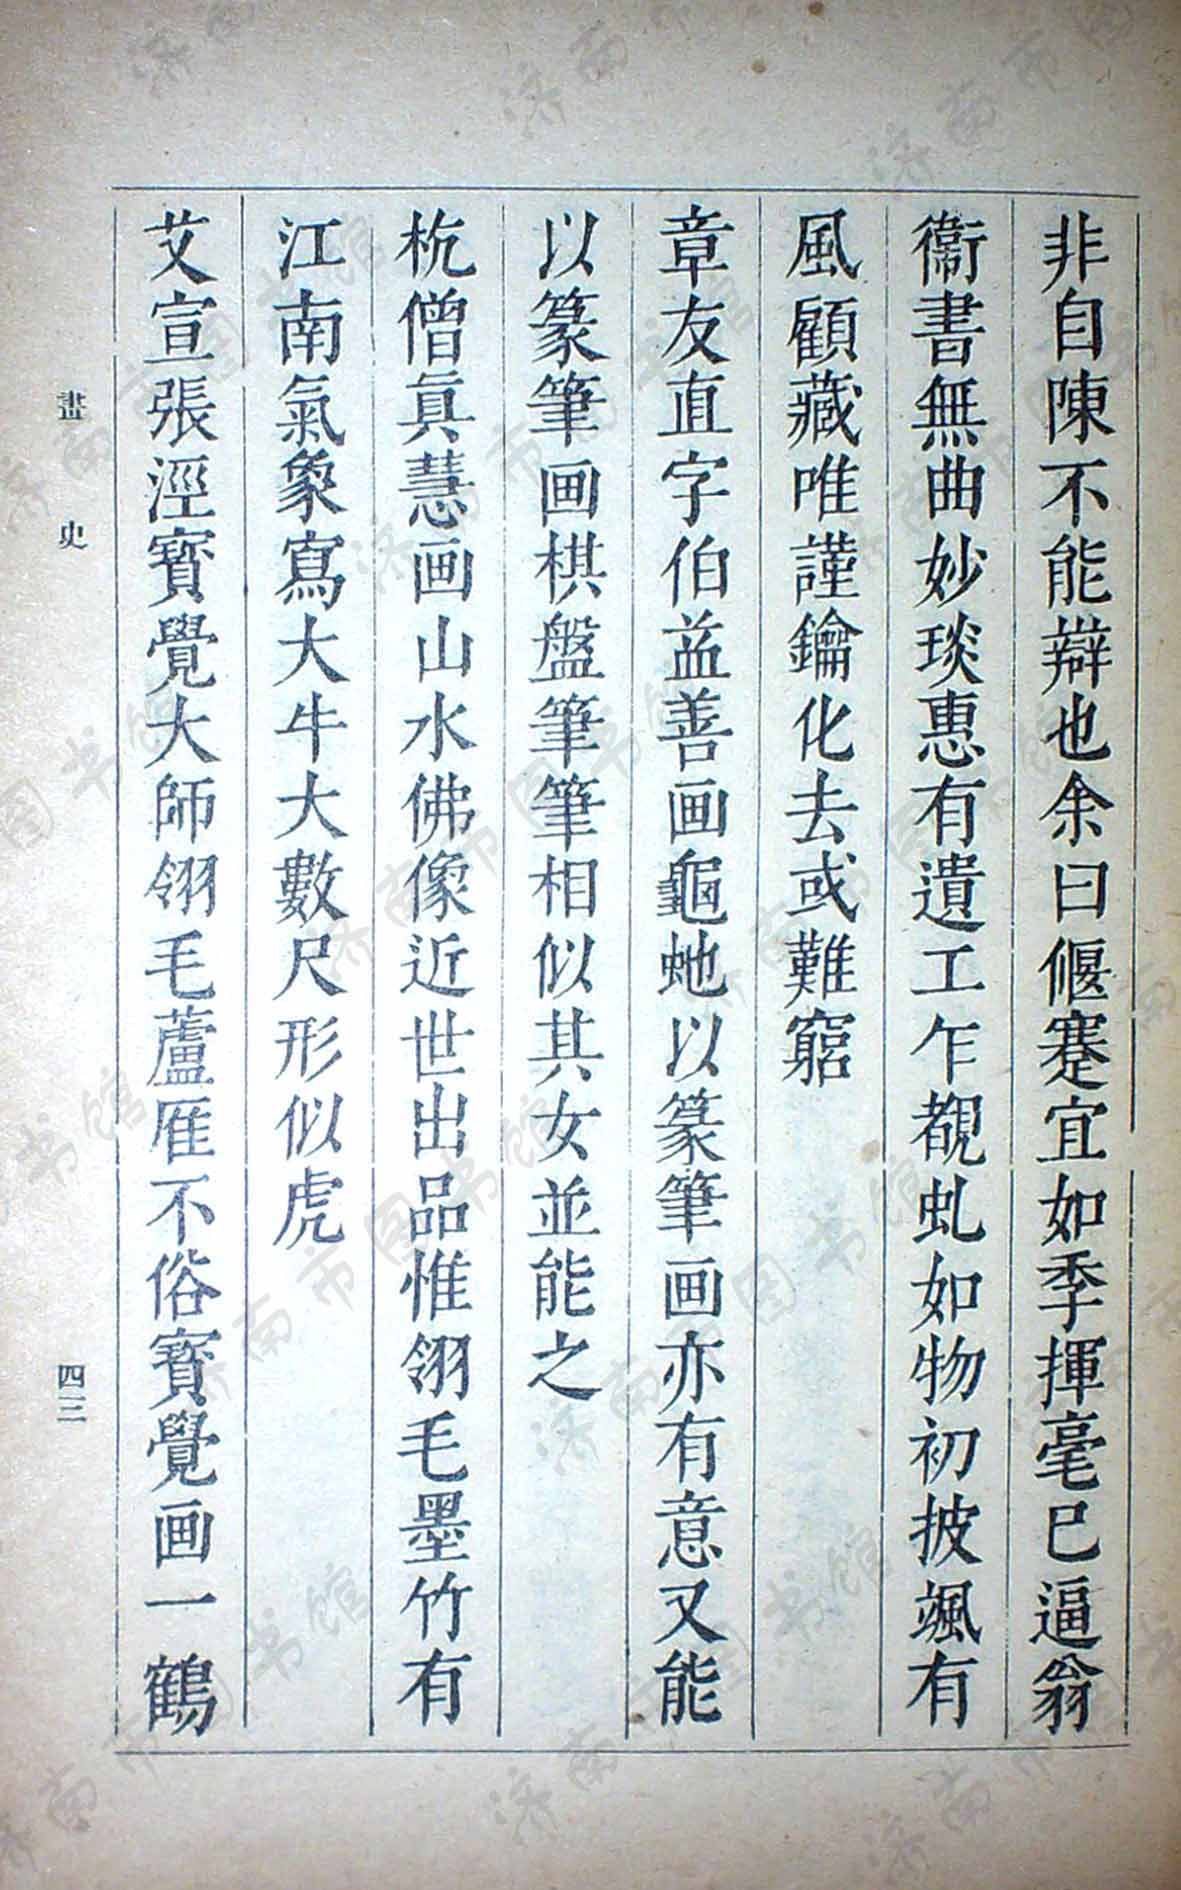 非自陳不能辯也余曰偃蹇宜如季揮毫已逼翁
衞書無曲妙琰惠有遺工乍覩虬如物初披颯有
風顧藏唯謹鑰化去或難窮
章友直字伯益善画龜虵以篆筆画亦有意又能
以篆筆画棋盤筆筆相似其女並能之
杭僧真慧画山水佛像近世出品惟翎毛墨竹有
江南氣象寫大牛大數尺形似虎
艾宣張涇寶覺大師翎毛蘆雁不俗寶覺画一鶴
畫史
四三
济南市图书馆